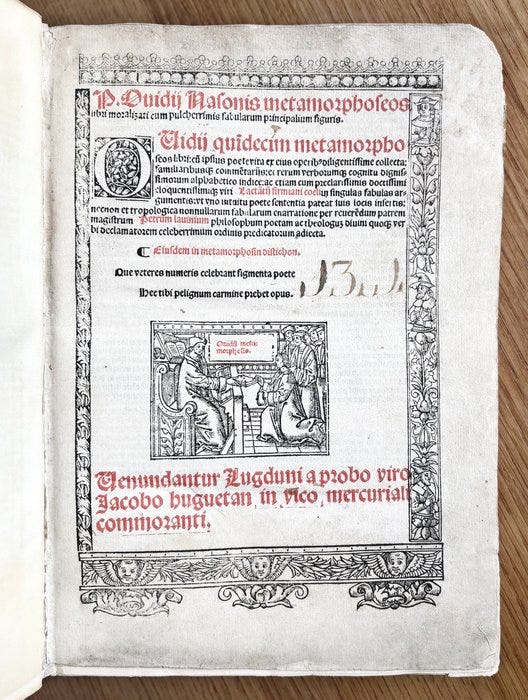 P. Ouidij Nasonis metamorphoseos
libri moralizati cum pulcherrimis fabularum principalium figuris.
OUidij quīdecim metamorpho
seos libri: cū ipsius poete vita ex eius operib⁹ diligentissime collecta:
familiaribusq; cōmētarijs: et rerum verborumq; cognitu dignis⸗
simorum alphabetico indice: ac etiam cum preclarissimis doctissimi
eloquentissimiq; viri Lactātij firmiani coeliq; singulas fabulas ar
gumentis: vt vno intuitu poete sententia pateat suis locis insertis:
necnon et tropologica nonnullarum fabularum enarratione per reuerēdum patrem
magistrum Petrum lauinium philosophum poetam ac theologū: diuini quoq; ver
bi declamatorem celeberrimum ordinis predicatorum adiecta.
¶ Eiusdem in metamorphosin distichon.
Que veteres numeris celebrant figmenta poete
Hec tibi pelignum carmine prebet opus.
Ouidij meta⸗
morphosis.
Uenundantur Lugduni a probo viro
Jacobo huguetan, in vico, mercuriali
commoranti.